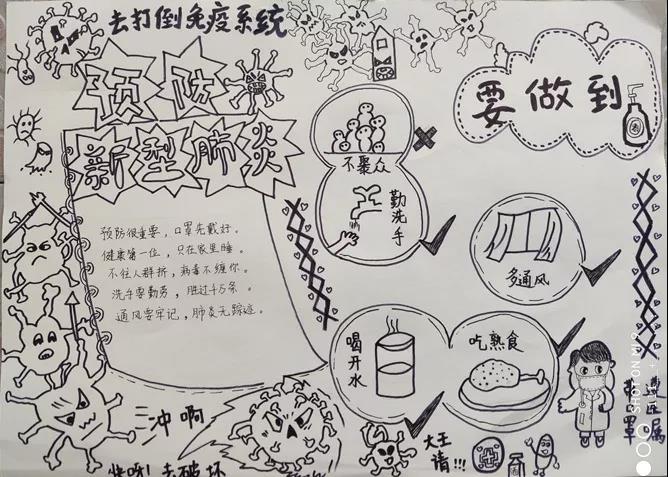 去打倒免疫系统
预防
新型肺炎
要做到
不聚众
勤洗手
多通风
预防很重要，口罩先戴好。
健康第一位，只在家里睡。
不往人群挤，病毒不缠你。
洗手要勤劳，
通风要牢记，肺炎无踪迹。
喝开水
吃熟食
冲啊
快呀！去破坏
大王
请!!!
戴口罩
遵医嘱
SHOT ON MI 9